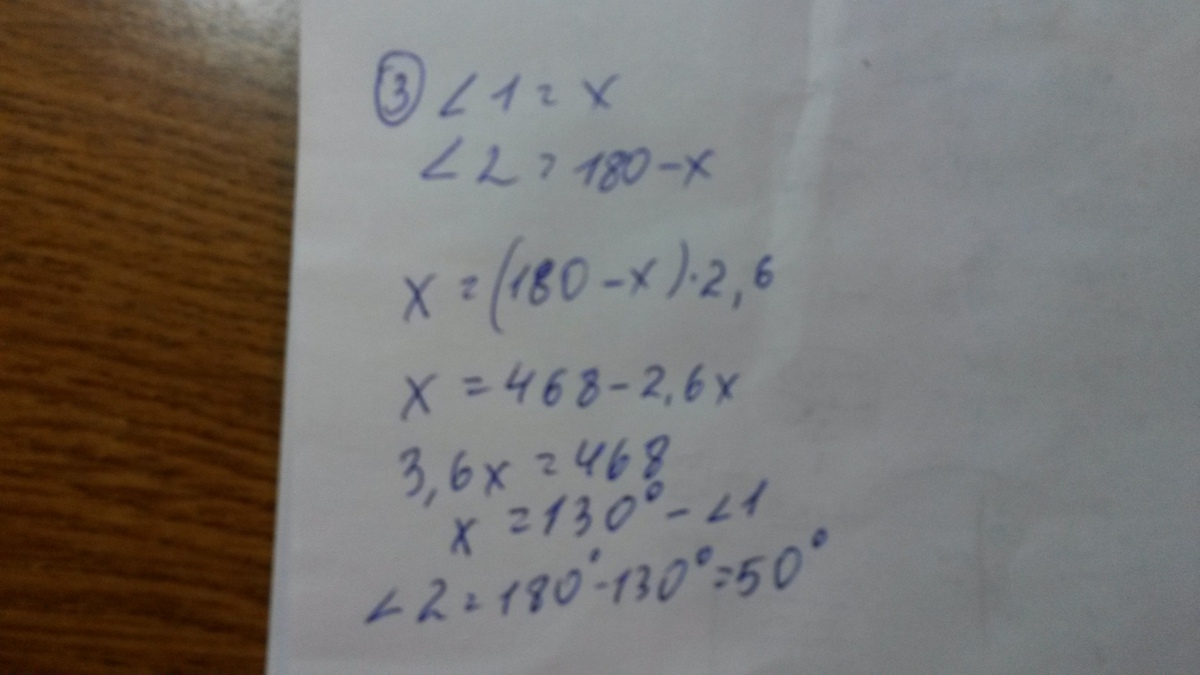 ③ ∠1 = x
∠2 = 180 - x
x = (180 - x) · 2,6
x = 468 - 2,6x
3,6x = 468
x = 130° - ∠1
∠2 = 180° - 130° = 50°